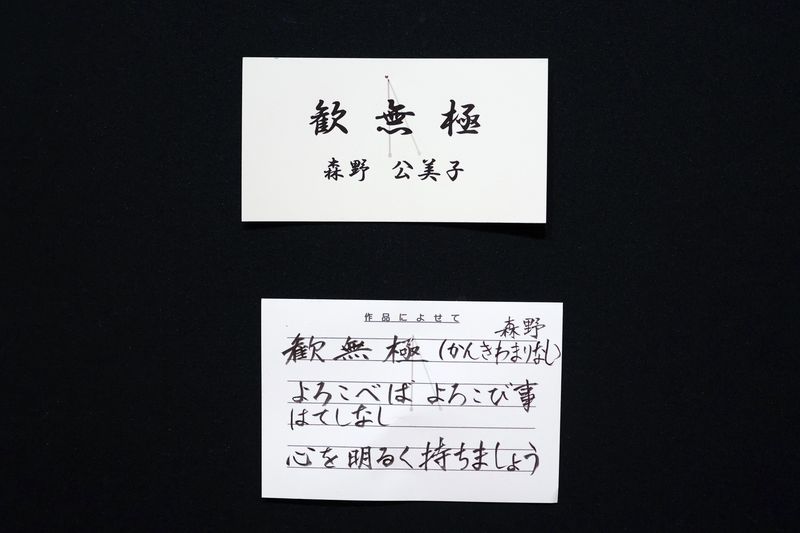 歓無極
森野 公美子
作品によせて
森野
歓無極(かんきわまりなし)
よろこべば よろこび事
はてしなし
心を明るく持ちましょう